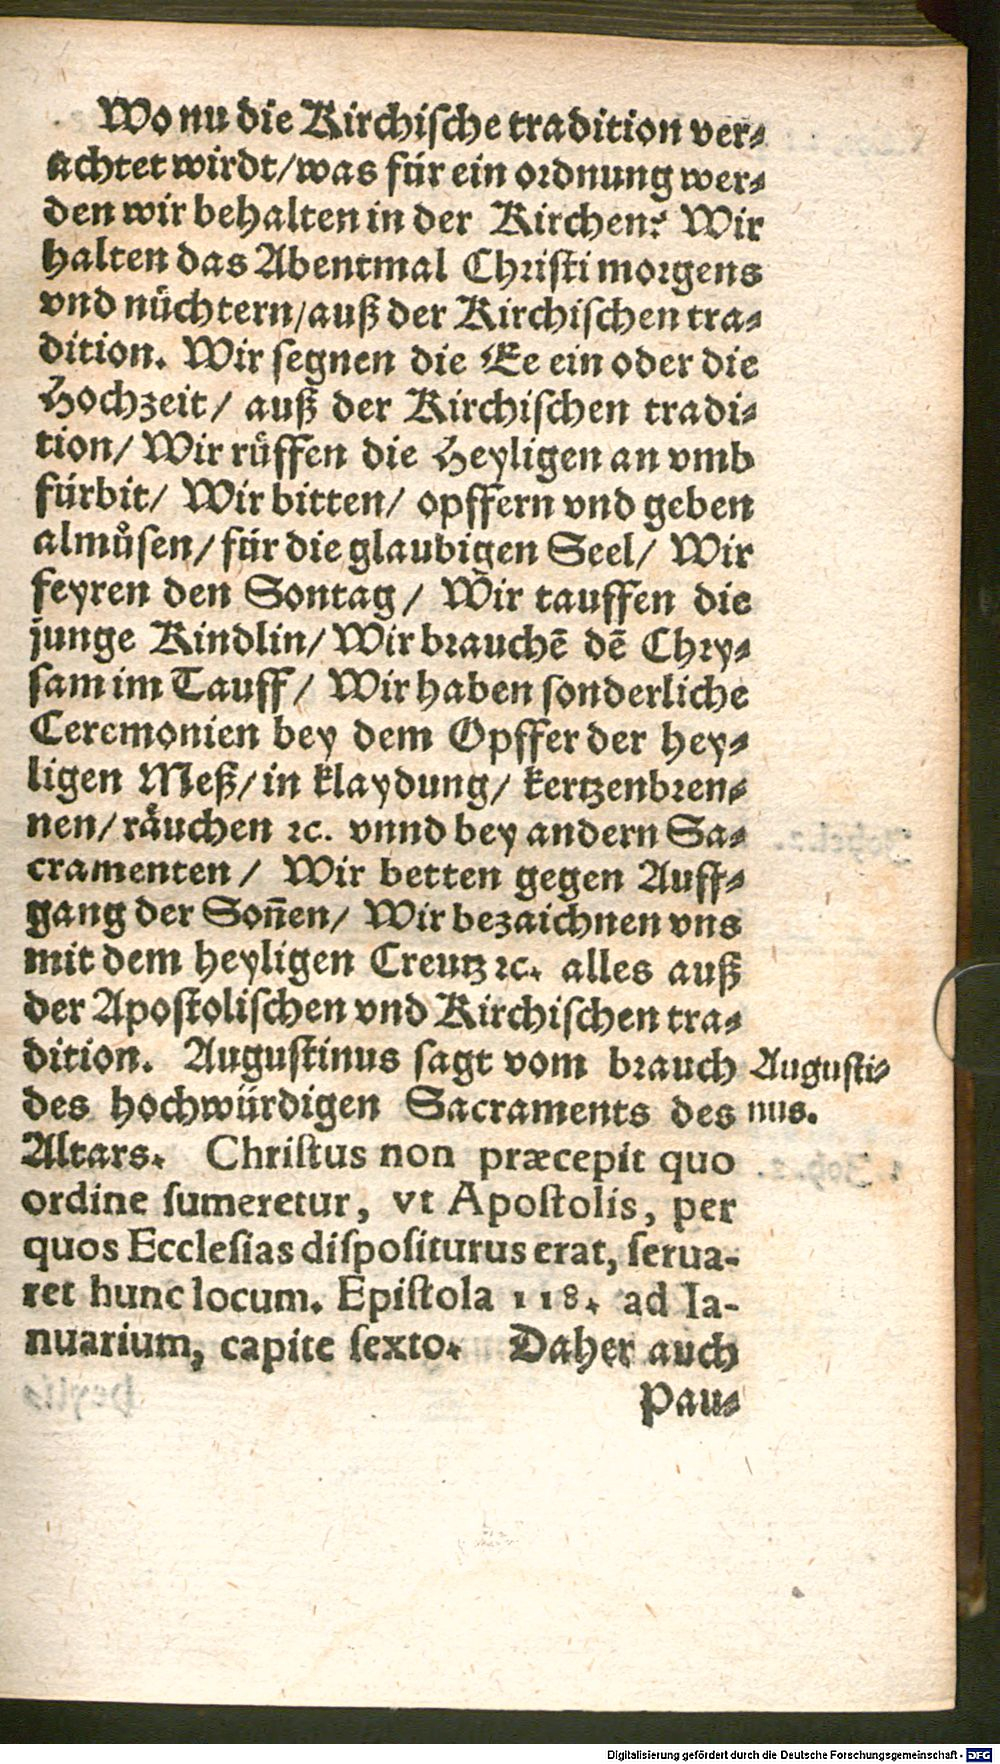 Wo nu die Kirchiſche tradition ver⸗
achtet wirdt/was für ein ordnung wer⸗
den wir behalten in der Kirchen? Wir
halten das Abentmal Chriſti morgens
vnd nüchtern/auß der Kirchiſchen tra⸗
dition. Wir ſegnen die Ee ein oder die
Hochzeit/ auß der Kirchiſchen tradi⸗
tion/ Wir rüffen die Heyligen an vmb
fürbit/ Wir bitten/ opffern vnd geben
almůſen/ für die glaubigen Seel/ Wir
feyren den Sontag/ Wir tauffen die
junge Kindlin/ Wir brauchē dē Chry⸗
ſam im Tauff/ Wir haben ſonderliche
Ceremonien bey dem Opffer der hey⸗
ligen Meß/ in klaydung/ kertzenbren⸗
nen/ räuchen ꝛc. vnnd bey andern Sa⸗
cramenten/ Wir betten gegen Auff⸗
gang der Soñen/ Wir bezaichnen vns
mit dem heyligen Creutz ꝛc. alles auß
der Apoſtoliſchen vnd Kirchiſchen tra⸗
dition. Auguſtinus ſagt vom brauch
des hochwürdigen Sacraments des
Altars. Chriſtus non præcepit quo
ordine ſumeretur, vt Apoſtolis, per
quos Eccleſias diſpoſiturus erat, ſerua-
ret hunc locum. Epiſtola 118. ad Ia-
nuarium, capite ſexto. Daher auch
Pau⸗
Auguſti⸗
nus.
Digitalisierung gefördert durch die Deutsche Forschungsgemeinschaft - DFG